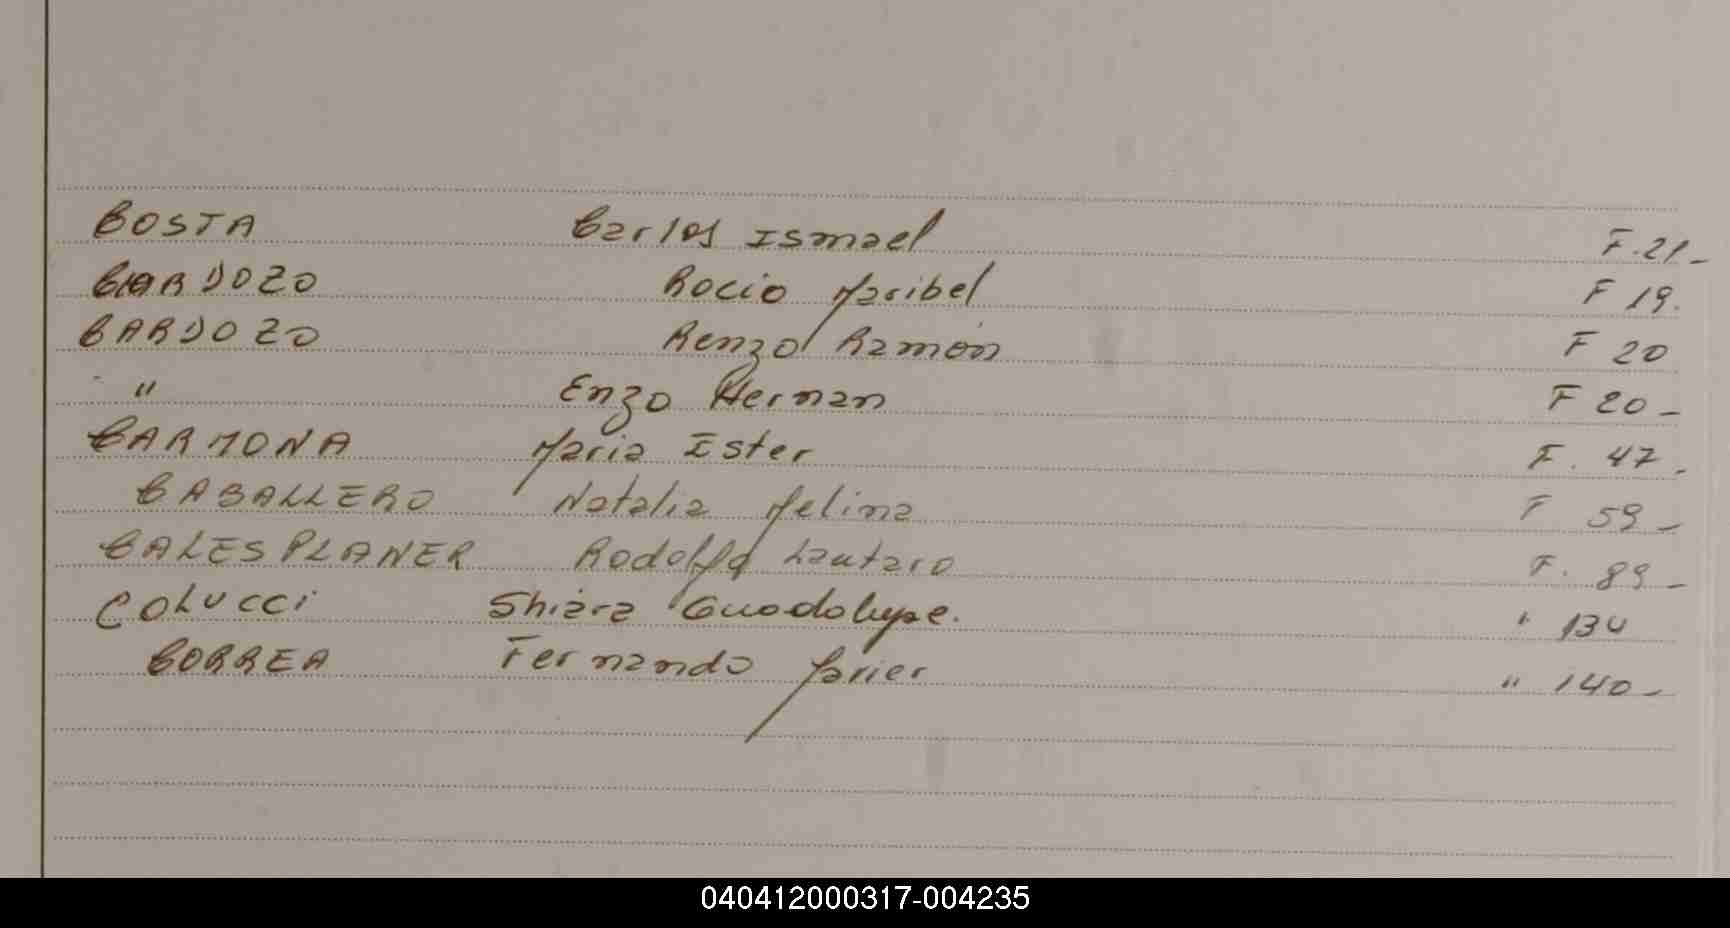 COSTA Carlos Ismael F. 21 -
CARDOZO Rocio Maribel F 19.
CARDOZO Renzo Ramón F 20
" Enzo Hernan F 20 -
CARMONA Maria Ester F. 47 -
CABALLERO Natalia Melina F 59 -
CALESPLANER Rodolfo Lautaro F. 89 -
COLUCCI Shiara Guadalupe. " 134
CORREA Fernando Javier " 140 -
040412000317-004235